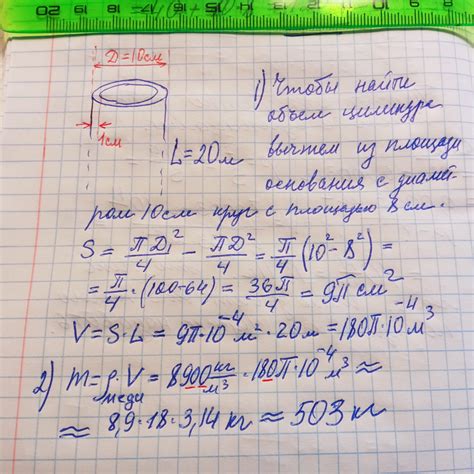 20 19 18 17 16 15 14 13 12
D=10см
1см
L=20м
1) Чтобы найти
объем цилиндра
вычтем из площади
основания с диамет-
ром 10см круг с площадью 8 см.
S = πD₁²/4 - πD²/4 = π/4 (10² - 8²) =
= π/4 · (100-64) = 36π/4 = 9π см²
V = S·L = 9π·10⁻⁴ м² · 20м = 180π·10⁻⁴ м³
2) m = ρ меди · V = 8900 кг/м³ · 180π·10⁻⁴ м³ ≈
≈ 8,9·18·3,14 кг ≈ 503 кг